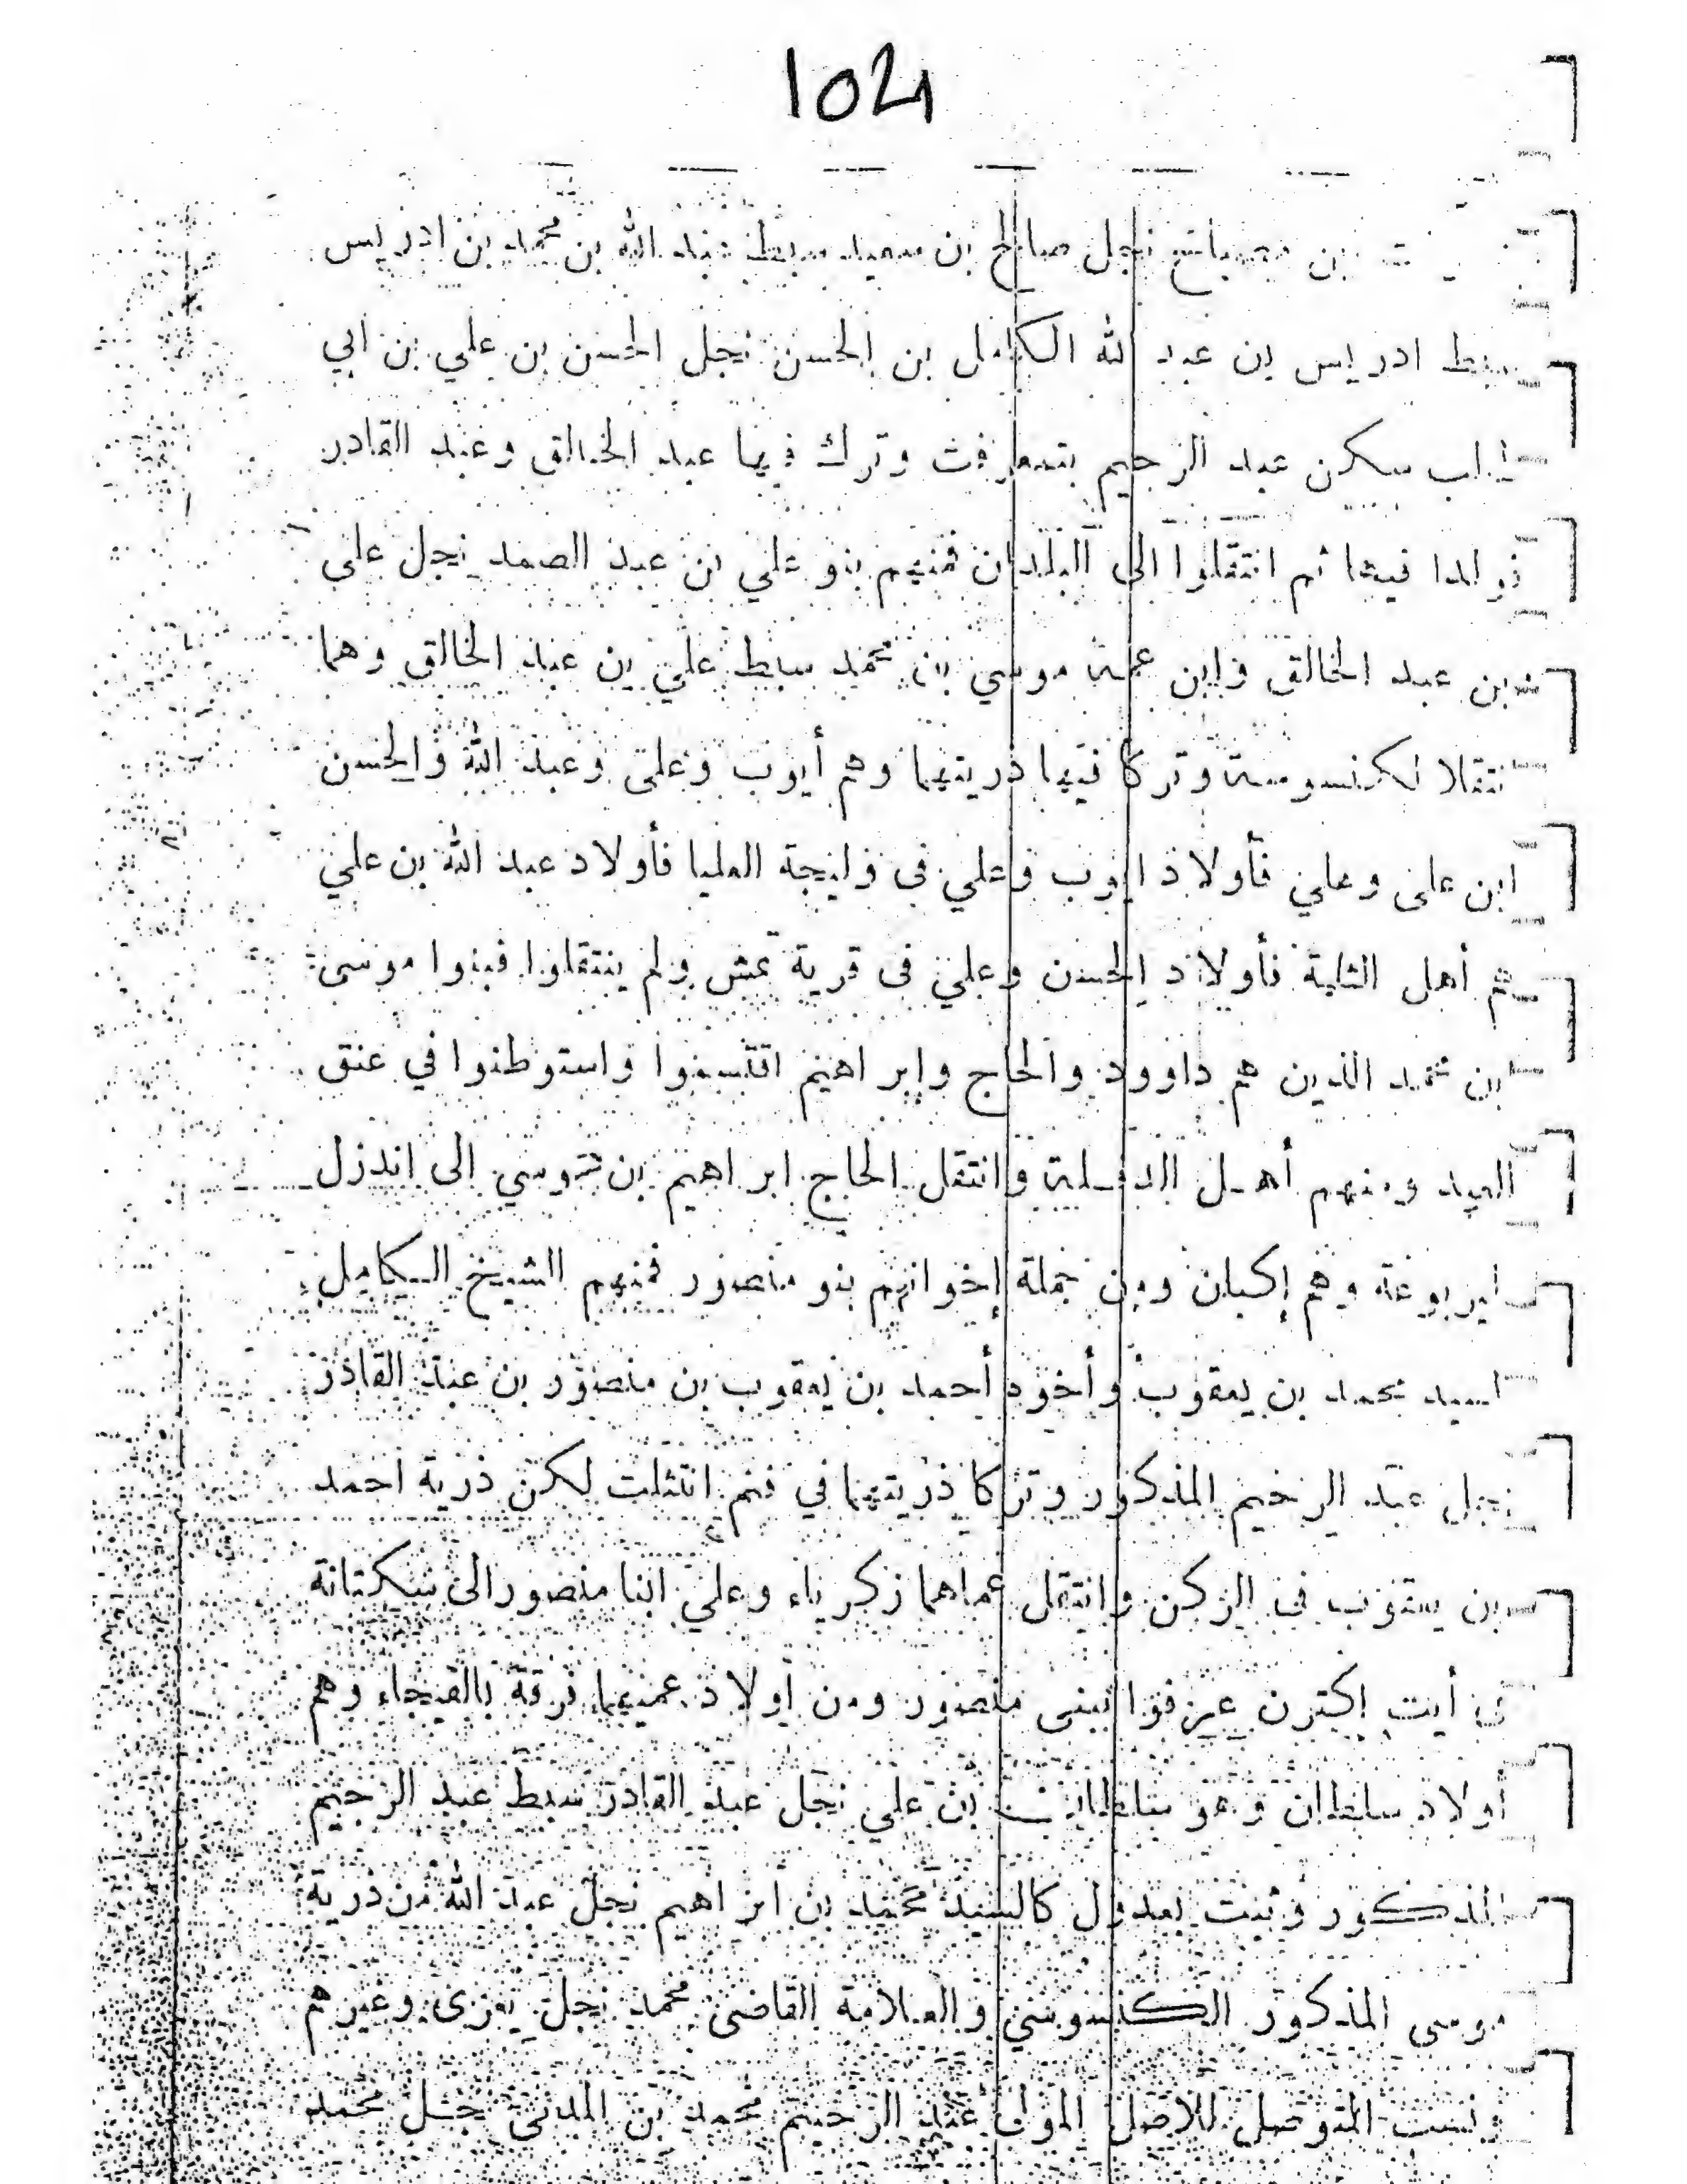 1024
بن مصباح نجل صالح بن سعيد سبط عبد الله بن محمد بن ادريس
سبط ادريس بن عبد الله الكامل بن الحسن نجل الحسن بن علي بن ابي
طالب سكن عبد الرحيم وترك فيها عبد الخالق وعبد القادر
فيها ثم انتقلوا الى البلدان فمنهم بنو علي بن عبد الصمد نجل على
بن عبد الخالق وابن عمه موسي بن محمد سبط علي بن عبد الخالق وهما
انتقلا لكنسوسة وتركا فيها ذريتهما وهم أيوب وعلى وعبد الله والحسن
ابن على وعلي فأولاد ايوب وعلي في وليجة العليا فأولاد عبد الله بن علي
هم أهل الثلية فأولاد الحسن وعلي في قرية تمش ولم ينتقلوا فبنوا موسى
ابن محمد الذين هم داوود والحاج وإبراهيم اقتسموا واستوطنوا في عنق
العيد ومنهم أهل وانتقل الحاج ابراهيم بن موسي الى اندزل
ايربوعة وهم إكبان ومن جملة إخوانهم بنو منصور فمنهم الشيخ الكامل
السيد محمد بن يعقوب وأخوه أحمد بن يعقوب بن منصور بن عبد القادر
نجل عبد الرحيم المذكور وتركا ذريتهما في فم اتثلت لكن ذرية احمد
بن يعقوب في الركن وانتقل عماهما زكرياء وعلي ابنا منصور الى سكتانة
في أيت إكترن عرفوا ببنى منصور ومن أولاد عميهما فرقة بالفيجاء وهم
أولاد سلطان وهو سلطان بن علي نجل عبد القادر سبط عبد الرحيم
المذكور وثبت بعدول كالسيد محمد بن ابراهيم نجل عبد الله من ذرية
موسى المذكور الكنسوسي والعلامة القاضى محمد نجل يعزى وغيرهم
ونسب المتوصل للاصل المولى عبد الرحيم محمد بن المدنى نجل محمد